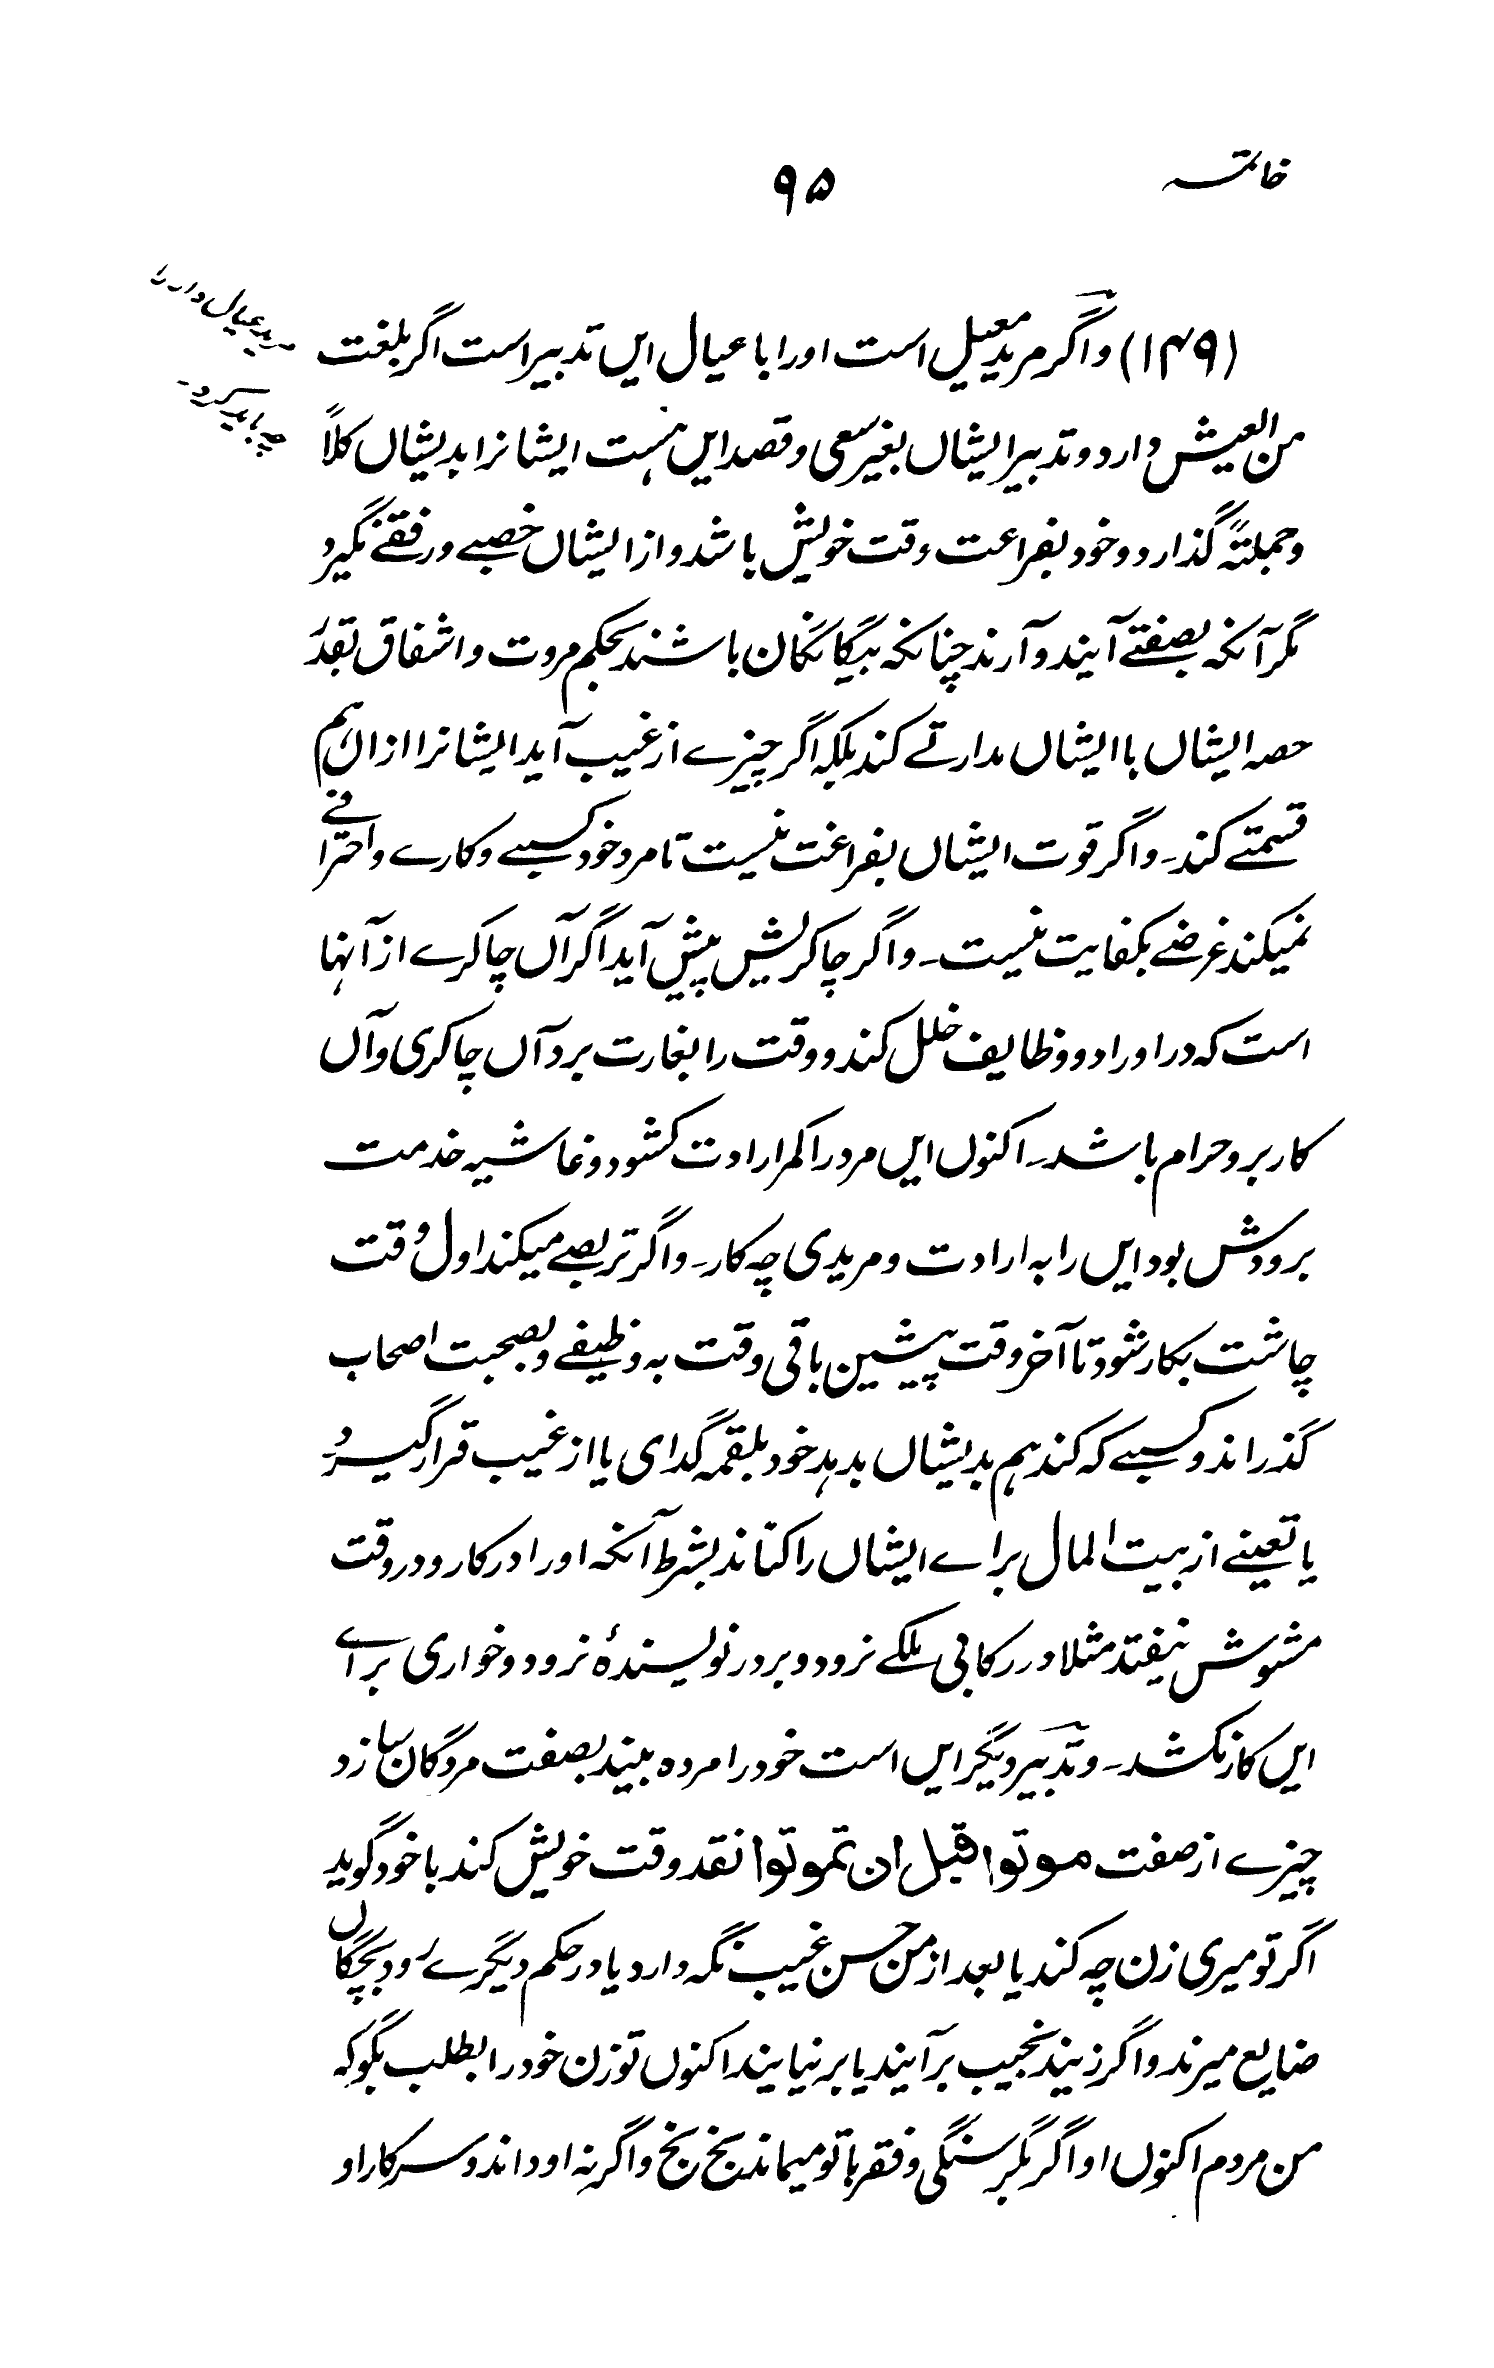 خاتمہ
۹۵
مرید عیال دار را
چہ باید کرد۔
(۱۴۹) و اگر مرید معیل است او را با عیال ایں تدبیر است اگر بلغت
من العیش دارد و تدبیر ایشاں بغیر سعی و قصد ایں ہست ایشانرا بدیشاں کلاً
و جملتہً گذارد و خود بفراغت وقت خویش باشد و از ایشاں خصبے و رفقے نگیرد
مگر آنکہ بصفتے آیند و آرند چنانکہ بیگانگان باشند بحکم مروت و اشفاق بقدر
حصہ ایشاں با ایشاں مدارتے کند بلکہ اگر چیزے از غیب آید ایشانرا ازاں ہم
قسمتے کند۔ و اگر قوت ایشاں بفراغت نیست تا مرد خود کسبے و کارے و احترافے
نمیکند غرضے بکفایت نیست۔ و اگر چاکریش پیش آید اگر آں چاکرے از آنہا
است کہ در اوراد و وظایف خلل کند و وقت را بغارت برد آں چاکری و آں
کار برو حرام باشد۔ اکنوں ایں مرد را کمر ارادت کشود و غاشیہ خدمت
بر دوش بود ایں را بہ ارادت و مریدی چہ کار۔ و اگر تربصے میکند اول وقت
چاشت بکار شود تا آخر وقت پیشین باقی وقت بہ وظیفے و بصحبت اصحاب
گذراند و کسبے کہ کند ہم بدیشاں بدہد خود بلقمہ گدای یا از غیب قرار گیرد و
یا تعینے از بیت المال براے ایشاں را کناند بشرط آنکہ او را در کار و در وقت
مشوش نیفتد مثلا در رکابی ملکے نرود و بر در نویسندۂ نرود و خواری براے
ایں کار نکشد۔ و تدبیر دیگر ایں است خود را مردہ بیند بصفت مردگان سازد
چیزے از صفت موتوا قبل ان تموتوا نقد وقت خویش کند با خود گوید
اگر تو میری زن چہ کند یا بعد از من حسن غیب نگہ دارد یا در حکم دیگرے رود بچگاں
ضایع میرند و اگر زیند نجیب برآیند یا بر نیایند اکنوں تو زن خود را بطلب بگو کہ
من مردم اکنوں او اگر بگرسنگی و فقر با تو میماند بخ بخ و اگر نہ او داند و سرکار او